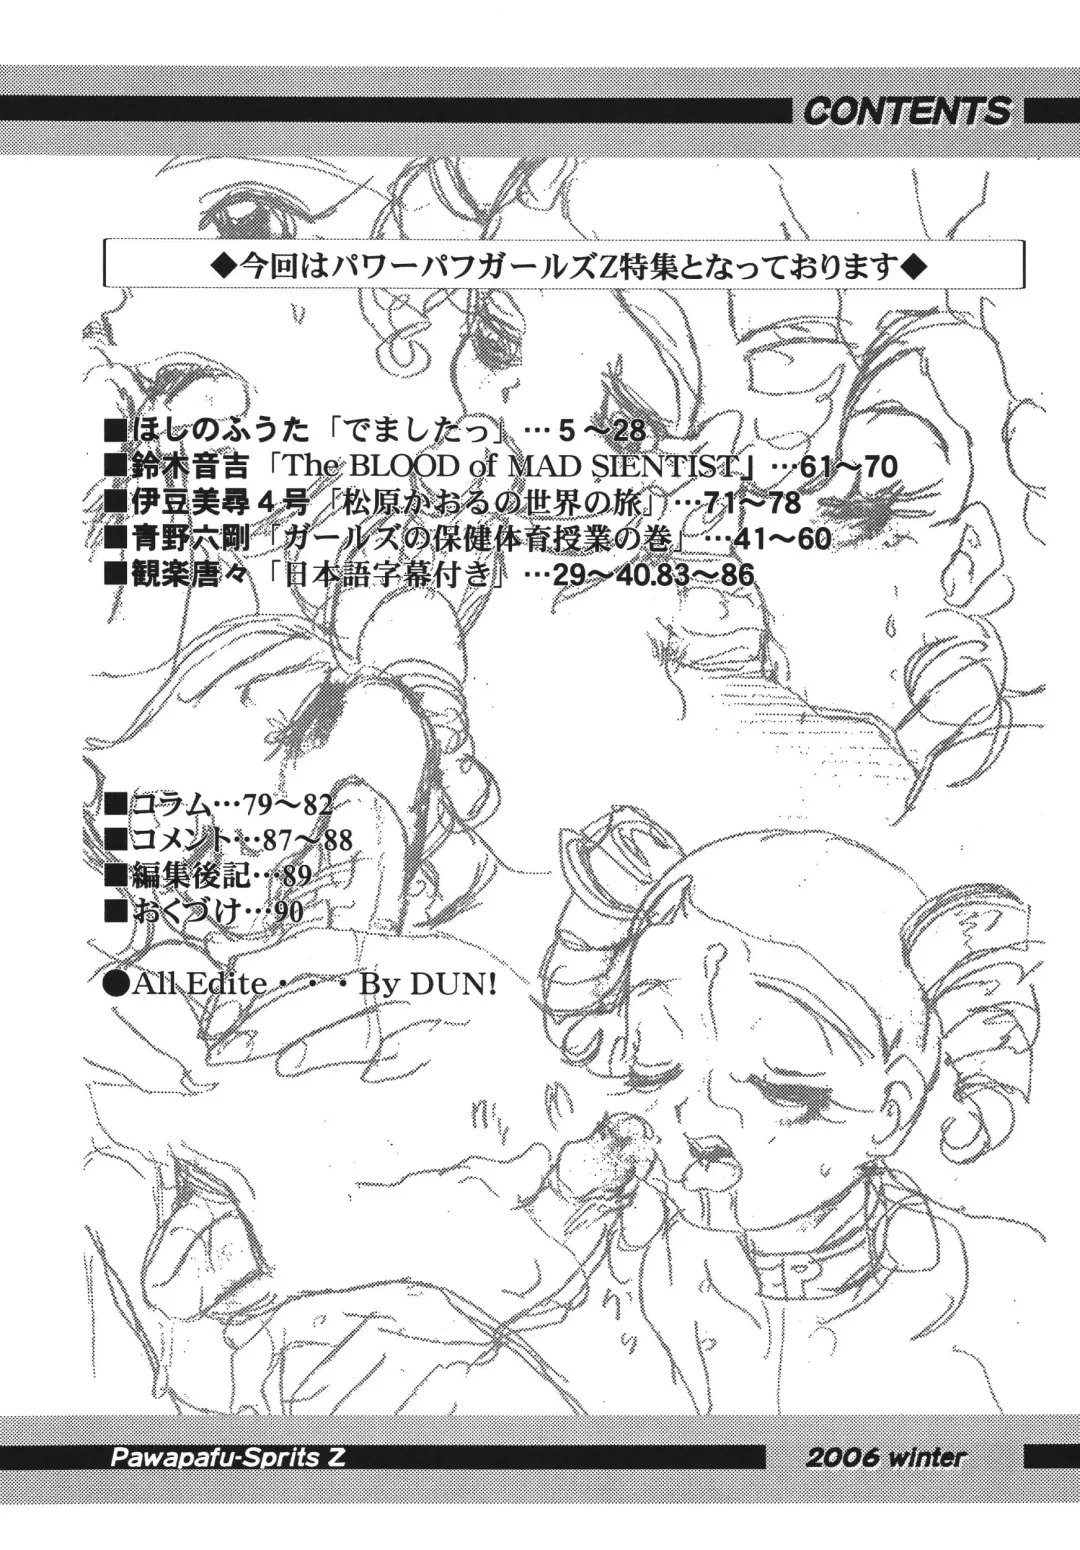 CONTENTS
◆今回はパワーパフガールズZ特集となっております◆
■ほしのふうた「でましたっ」…5～28
■鈴木音吉「The BLOOD of MAD SIENTIST」…61～70
■伊豆美尋4号「松原かおるの世界の旅」…71～78
■青野六剛「ガールズの保健体育授業の巻」…41～60
■観楽唐々「日本語字幕付き」…29～40.83～86
■コラム…79～82
■コメント…87～88
■編集後記…89
■おくづけ…90
●All Edite・・・By DUN!
Pawapafu-Sprits Z
2006 winter